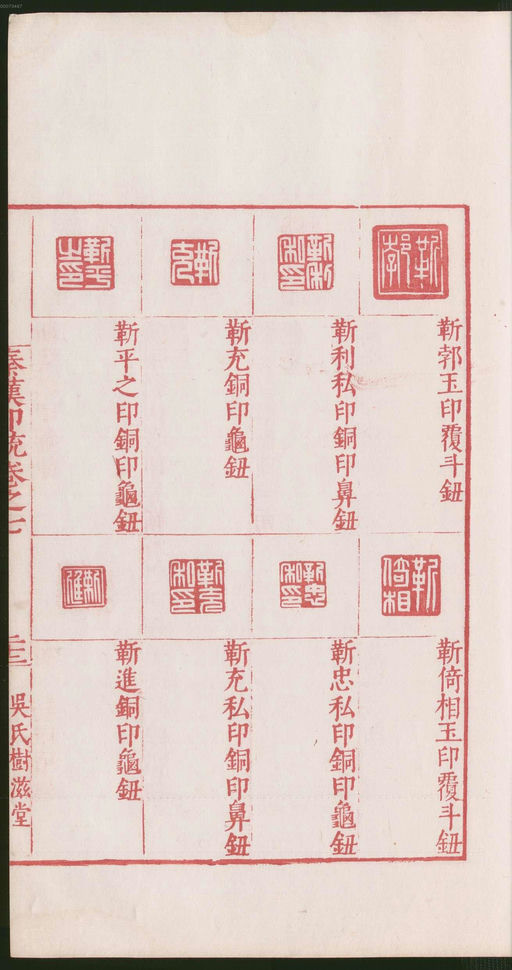 00073447
靳郭玉印覆斗鈕
靳利私印銅印鼻鈕
靳充銅印龜鈕
靳平之印銅印龜鈕
靳倚相玉印覆斗鈕
靳忠私印銅印龜鈕
靳充私印銅印鼻鈕
靳進銅印龜鈕
秦漢印統卷之七
吳氏樹滋堂